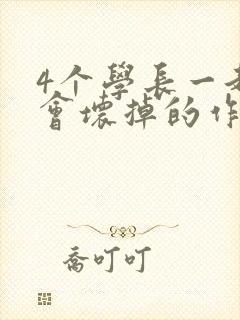 4个學長一
會壞掉的作
喬叮叮